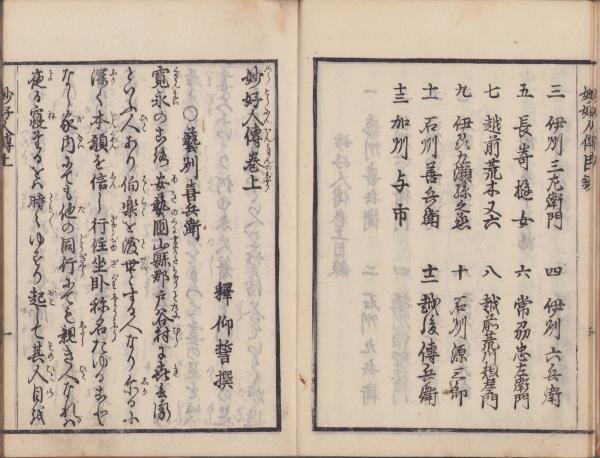 妙好人傳目録
三 伊州三左衛門 四 伊州六兵衛
五 長嵜 女 六 常刕忠左衛門
七 越前荒木又六 八 越前荒川 左衛門
九 伊 瀬孫 十 石州源三郎
十一 石州善兵衛 十二 越後傳兵衛
十三 加州与市
妙好人傳巻上
釋仰誓撰
○藝州喜兵衛
寛永のころ安藝國山縣郡戸谷村に喜兵衛
といふ人あり伯楽を渡世とする人なりしかるに
深く本願を信し行住坐卧称名たゆることな
なく家内にても他の同行にても親き人なれハ
夜る寝 るをハ時々ゆすり起して其人目を
妙好人傳上 一